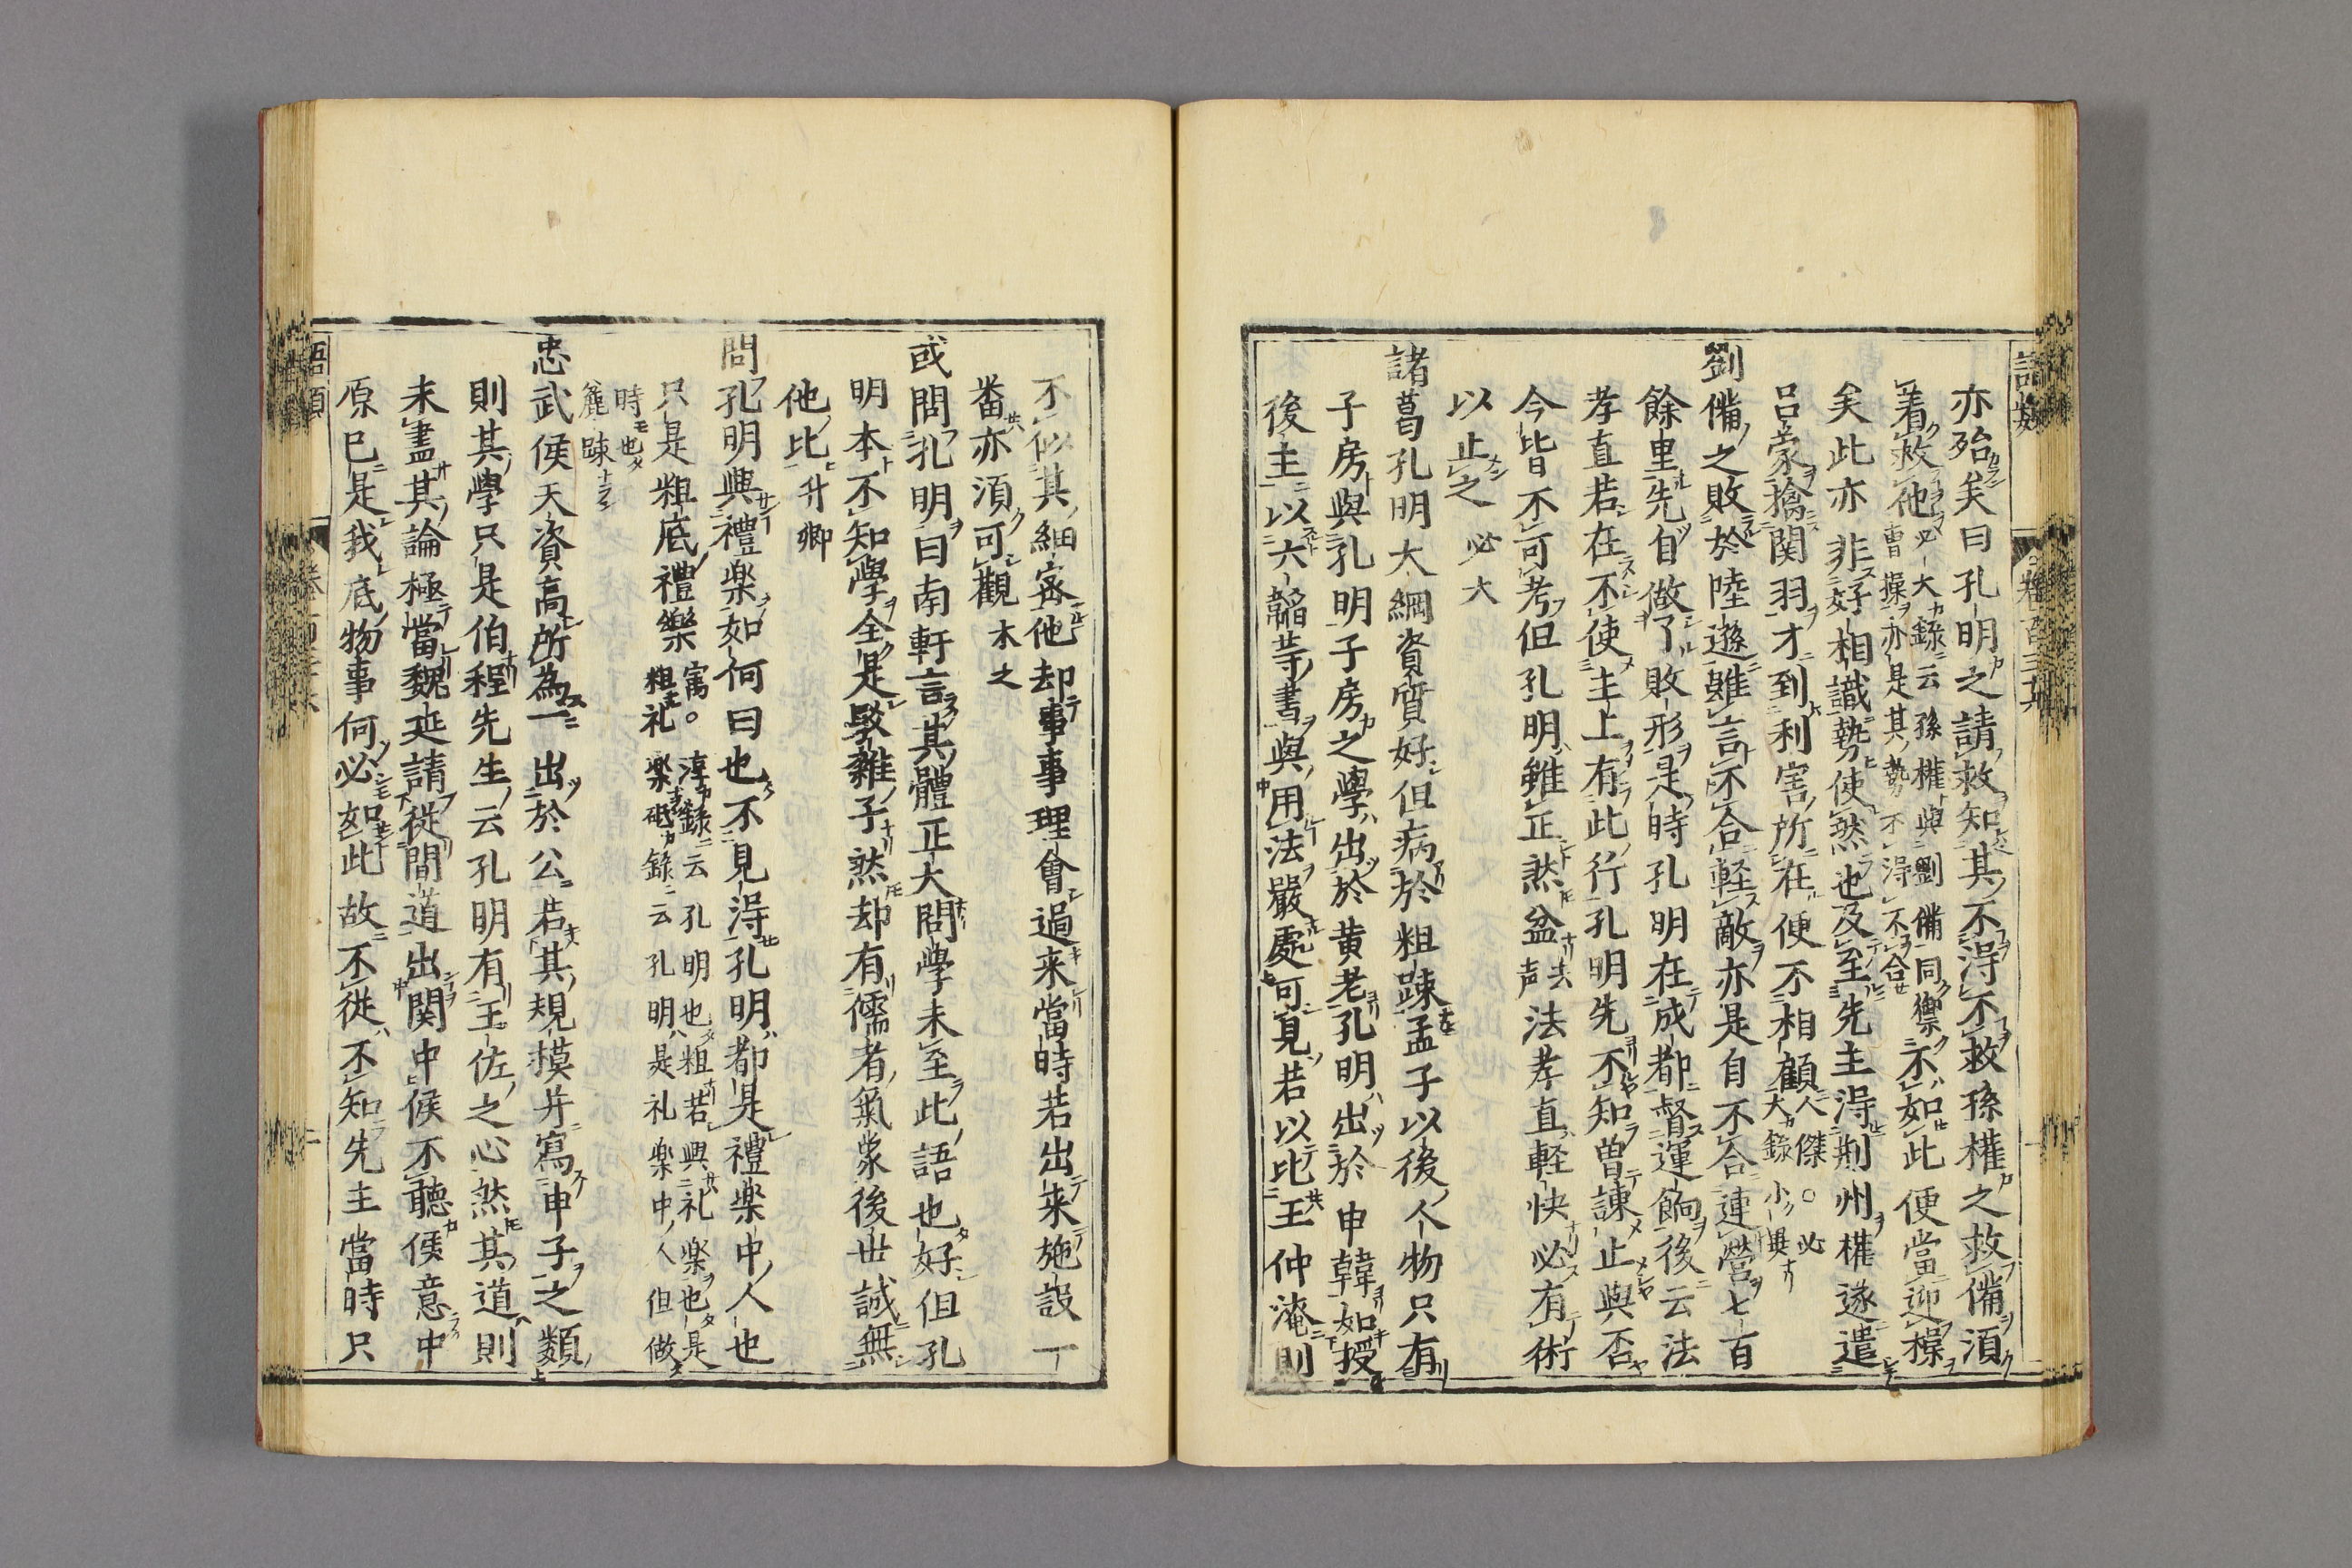 語類 卷百三十六
亦殆矣曰孔明之請救知其不得不救孫權之救備須
着救他必大錄云孫權與劉備同禦曹操亦是其勢不得不合不如此便當迎操
矣此亦非好相識勢使然也及至先主得荆州權遂遣
呂蒙擒関羽才到利害所在便不相顧人傑。必大錄小異
劉備之敗於陸遜雖言不合軽敵亦是自不合連營七百
餘里先自做了敗形是時孔明在成都督運餉後云法
孝直若在不使主上有此行孔明先不知曽諫止與否
今皆不可考但孔明雖正然盆去声法孝直軽快必有術
以止之必大
諸葛孔明大綱資質好但病於粗踈孟子以後人物只有
子房與孔明子房之學出於黄老孔明出於申韓如授
後主以六韜等書與用法嚴處可見若以比王仲淹則
不似其細宻他却事事理會過来當時若出来施設一
番亦須可觀木之
或問孔明曰南軒言其體正大問學未至此語也好但孔
明本不知學全是駁雜子然却有儒者氣象後世誠無
他比升卿
問孔明興禮楽如何曰也不見得孔明都是禮楽中人也
只是粗底禮樂寓。淳錄云孔明也粗若興礼楽也是粗礼楽砥錄云孔明是礼楽中人但做
時也麄踈
忠武侯天資高所為一出於公若其規摸并寫申子之類
則其學只是伯程先生云孔明有王佐之心然其道則
未盡其論極當魏延請従間道出関中侯不聽侯意中
原已是我底物事何必如此故不従不知先主當時只
語類